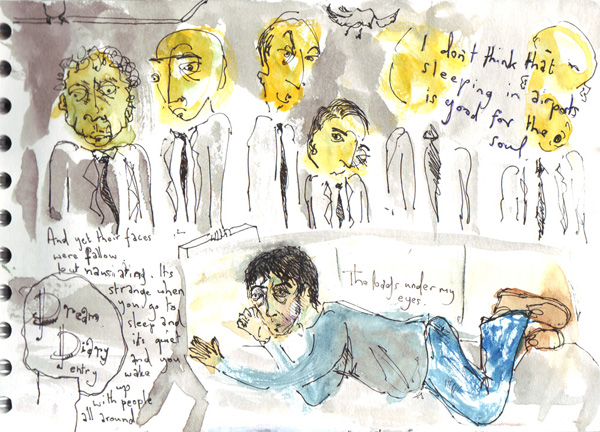 I don't think that
sleeping in airports
is good for the
soul.
And yet their faces
were fallow
but nauseating. Its
strange when
you go to
sleep and
it's quiet
and you
wake
up
with people
all around
Dream
Diary
entry
The under my
eyes.